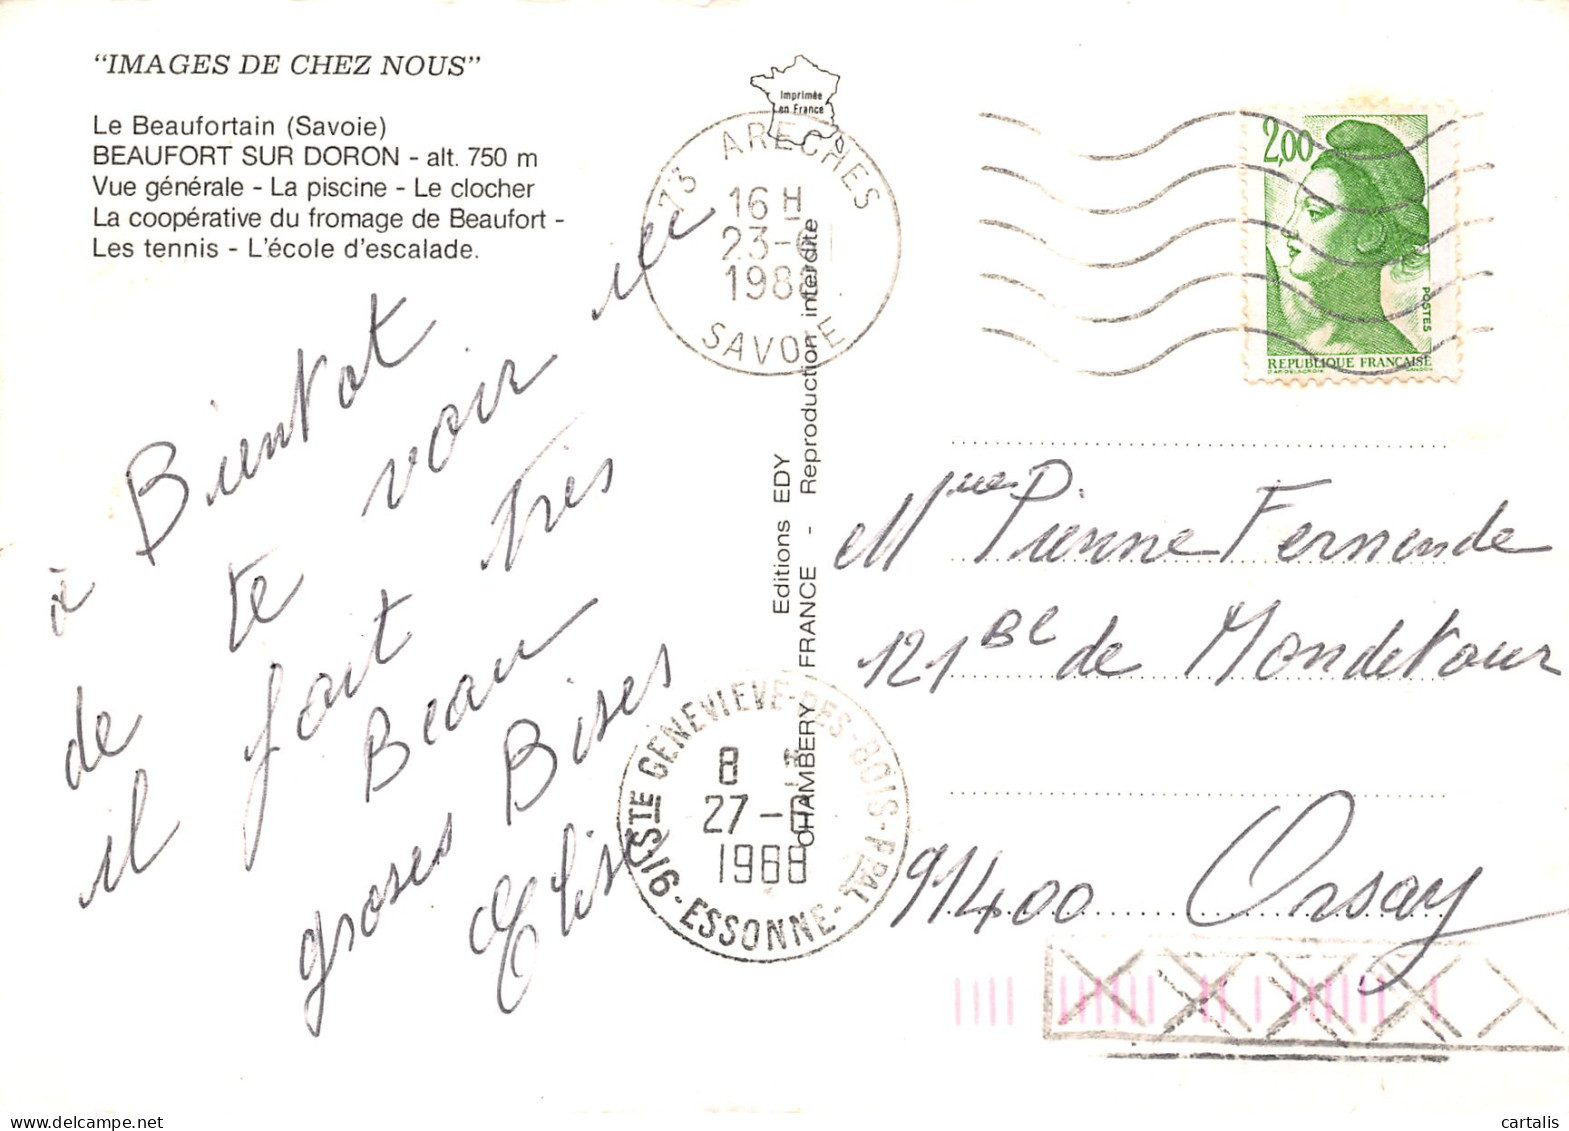 "IMAGES DE CHEZ NOUS"
Le Beaufortain (Savoie)
BEAUFORT SUR DORON - alt. 750 m
Vue générale - La piscine - Le clocher
La coopérative du fromage de Beaufort -
Les tennis - L'école d'escalade.
à Bientot
de te voir ici
il fait Très
Beau
groses Bises
Elise
Imprimée
en France
73 ARECHES
16 H
23-
198
SAVOIE
Editions EDY
CHAMBERY FRANCE - Reproduction interdite
91 STE GENEVIEVE-DES-BOIS-PPAL
8
27-
1988
ESSONNE
2,00
POSTES
REPUBLIQUE FRANÇAISE
D'AP. DELACROIX
GANDON
Mme Pierre Fernende
121 Bl de Mondetour
91400 Orsay
cartalis